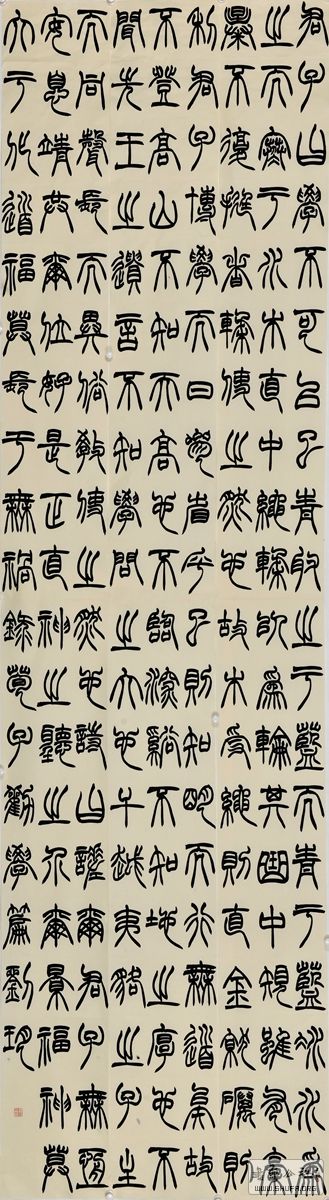 君子曰學不可以已青取之于藍而青于藍冰水為
之而寒于水木直中繩輮以為輪其曲中規雖有槁
暴不復挺者輮使之然也故木受繩則直金就礪則
利君子博學而日參省乎己則知明而行無過矣故
不登高山不知天高也不臨深谿不知地之厚也不
聞先王之遺言不知學問之大也干越夷貉之子生
而同聲長而異俗教使之然也詩曰嗟爾君子無恆
安息靖共爾位好是正直神之聽之介爾景福神莫
大于化道福莫長于無禍錄荀子勸學篇劉
WWW.SHUFA.ORG